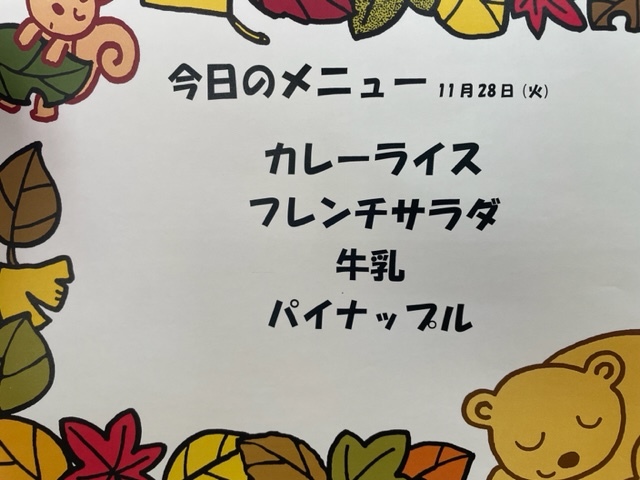 今日のメニュー 11月28日(火)
カレーライス
フレンチサラダ
牛乳
パイナップル